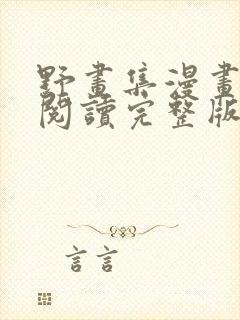 野畫集漫畫
閱讀完整版
言言